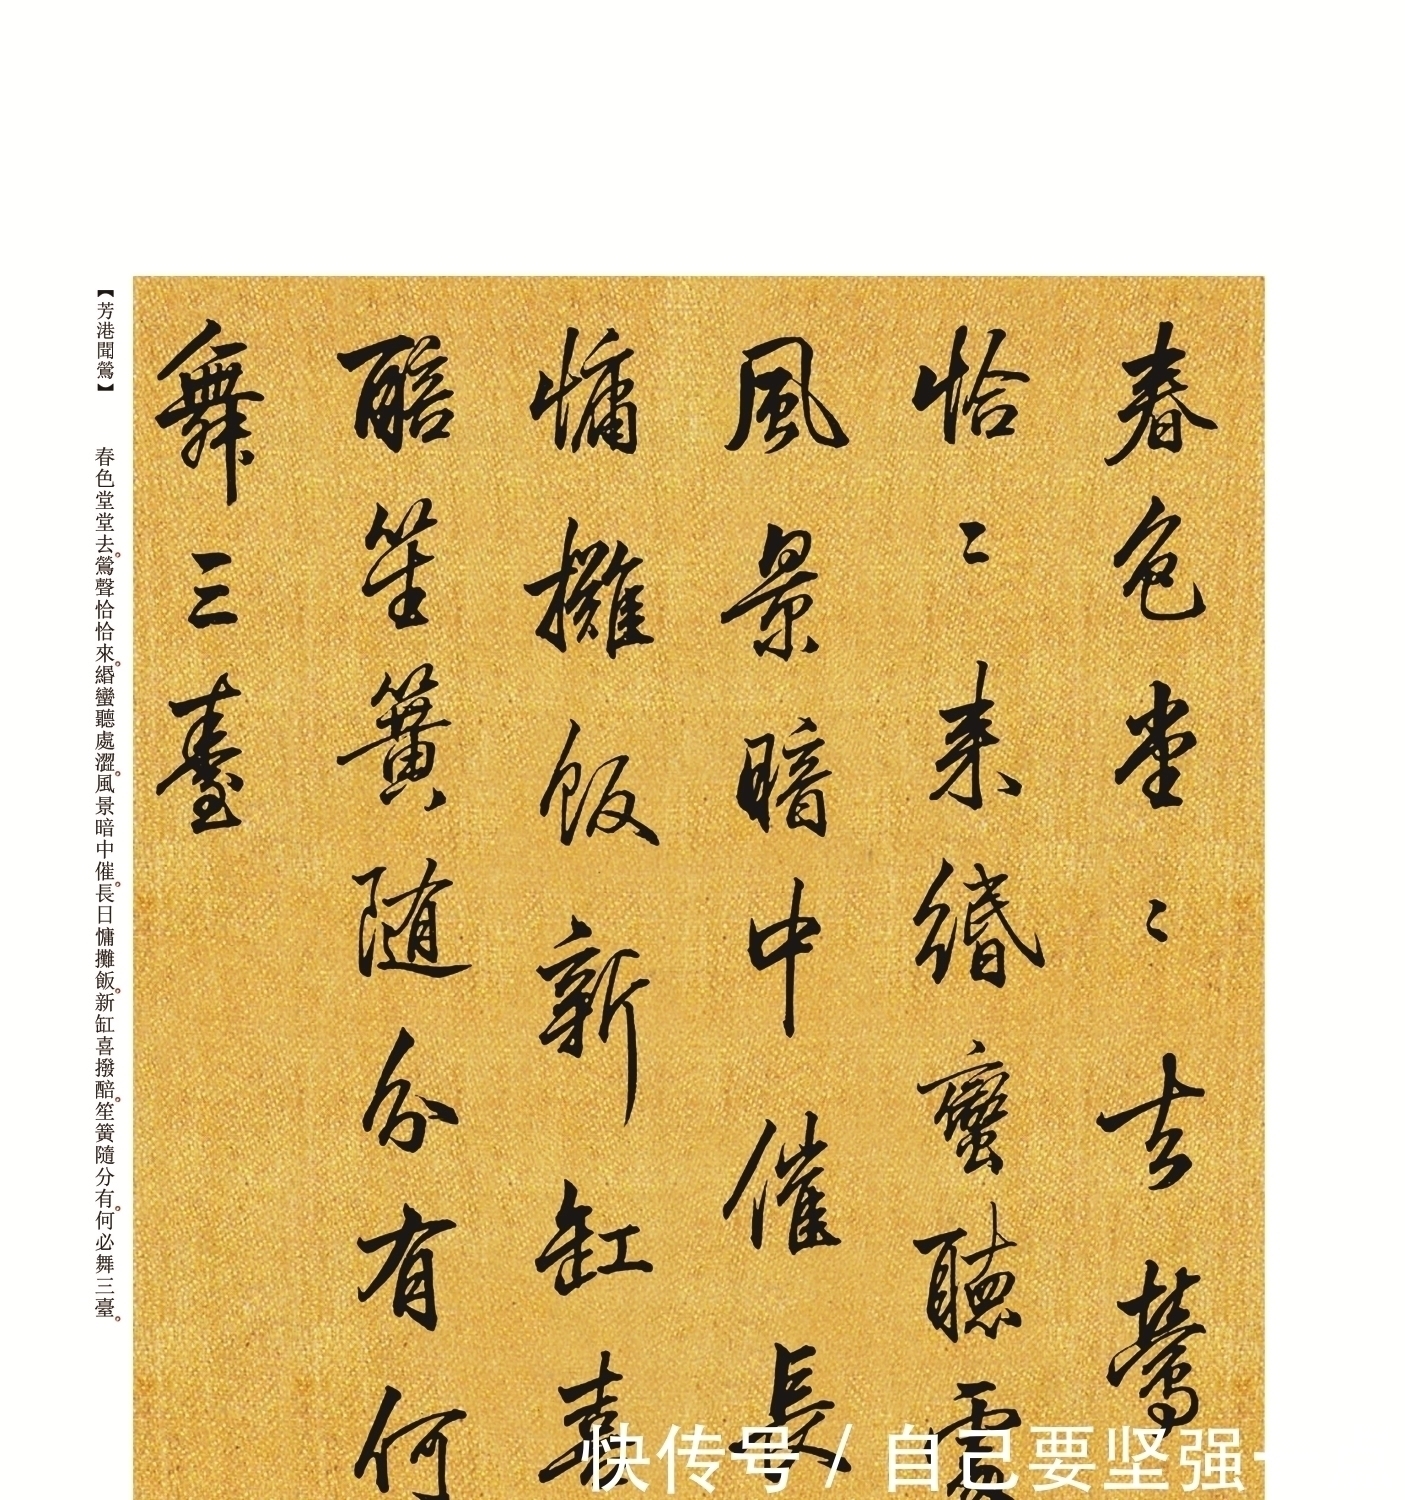 春色堂〻去鶯
恰〻来緡蠻聽處
風景暗中催長
慵攤飯新缸喜
醅笙簧随分有何
舞三臺
【芳港聞鶯】 春色堂堂去。鶯聲恰恰來。緡蠻聽處澀。風景暗中催。長日慵攤飯。新缸喜撥醅。笙簧隨分有。何必舞三臺。
快传号/自己要坚强